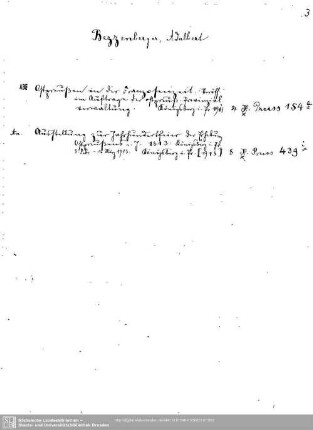 3
Bezzenberger, Adalbert
Ostpreußen in der Franzosenzeit. Veröff.
im Auftrage der ostpreuß. Provinzial
verwaltung. Königsberg i. Pr. 4 H. Pruss 154
Ausstellung zur Jahrhundertfeier der Erhebung
Ostpreußens i. J. 1813. Königsberg i. Pr.
1913. Königsberg i. Pr. [1913] 8 H. Pruss 439
Sächsische Landesbibliothek -
Staats- und Universitätsbibliothek Dresden